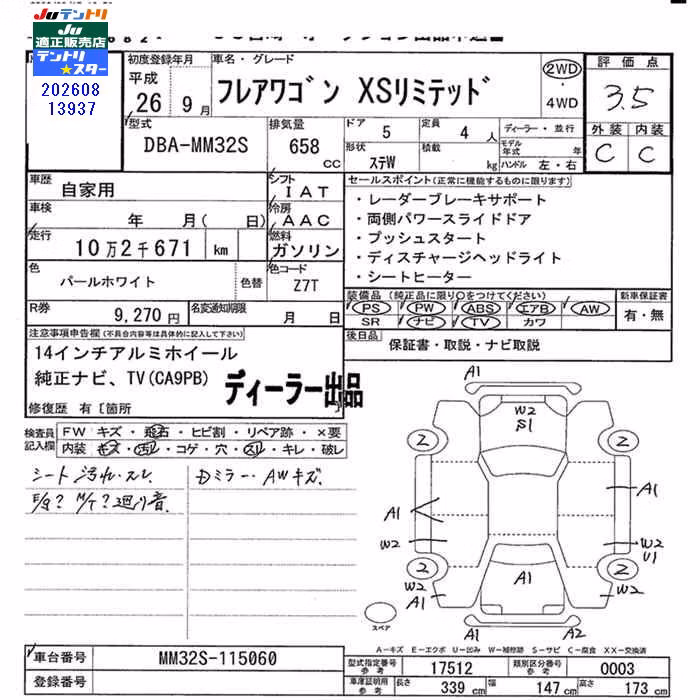 Juテントリ
JU
適正販売店
テントリ
★スター
202608
13937
初度登録年月
平成
26 9月
車名・グレード
フレアワゴン XSリミテッド
2WD
・
4WD
評価点
3.5
外装 内装
C C
型式
DBA-MM32S
排気量
658
CC
ドア
5
定員
4 人
ディーラー・並行
形状
ステW
積載
kg
モデル年式
年
ハンドル 左・右
車歴
自家用
シフト
I AT
車検
年 月( 日)
冷房
A AC
走行
10万2千671 km
燃料
ガソリン
色
パールホワイト
色替
色コード
Z7T
R券
9,270円
名変通知期限
月 日
セールスポイント(正常に機能するものに限ります)
・レーダーブレーキサポート
・両側パワースライドドア
・プッシュスタート
・ディスチャージヘッドライト
・シートヒーター
装備品(純正品に限り○をつけてください)
PS PW ABS エアB AW
SR ナビ TV カワ
新車保証書
有・無
後日品
保証書・取説・ナビ取説
注意事項申告欄(不具合内容等は具体的に記入して下さい)
14インチアルミホイール
純正ナビ、TV(CA9PB)
ディーラー出品
修復歴 有[箇所 ]
検査員
記入欄
FW キズ・飛石・ヒビ割・リペア跡・×要
内装 キズ・汚レ・コゲ・穴・スレ・キレ・破レ
シート汚れ・スレ
E/g? M/T? 廻り音
Dミラー・AWキズ
A1
W2
S1
2
2
A1
A1
W2
W2
U1
2
2
W2
A1
A1
W2
スペア
A1
A2
A-キズ E-エクボ U-凹み W-補修跡 S-サビ C-腐食 XX-交換済
車台番号
MM32S-115060
登録番号
型式指定番号
参考
17512
類別区分番号
参考
0003
車庫証明用
参考
長さ
339 cm
幅
147 cm
高さ
173 cm